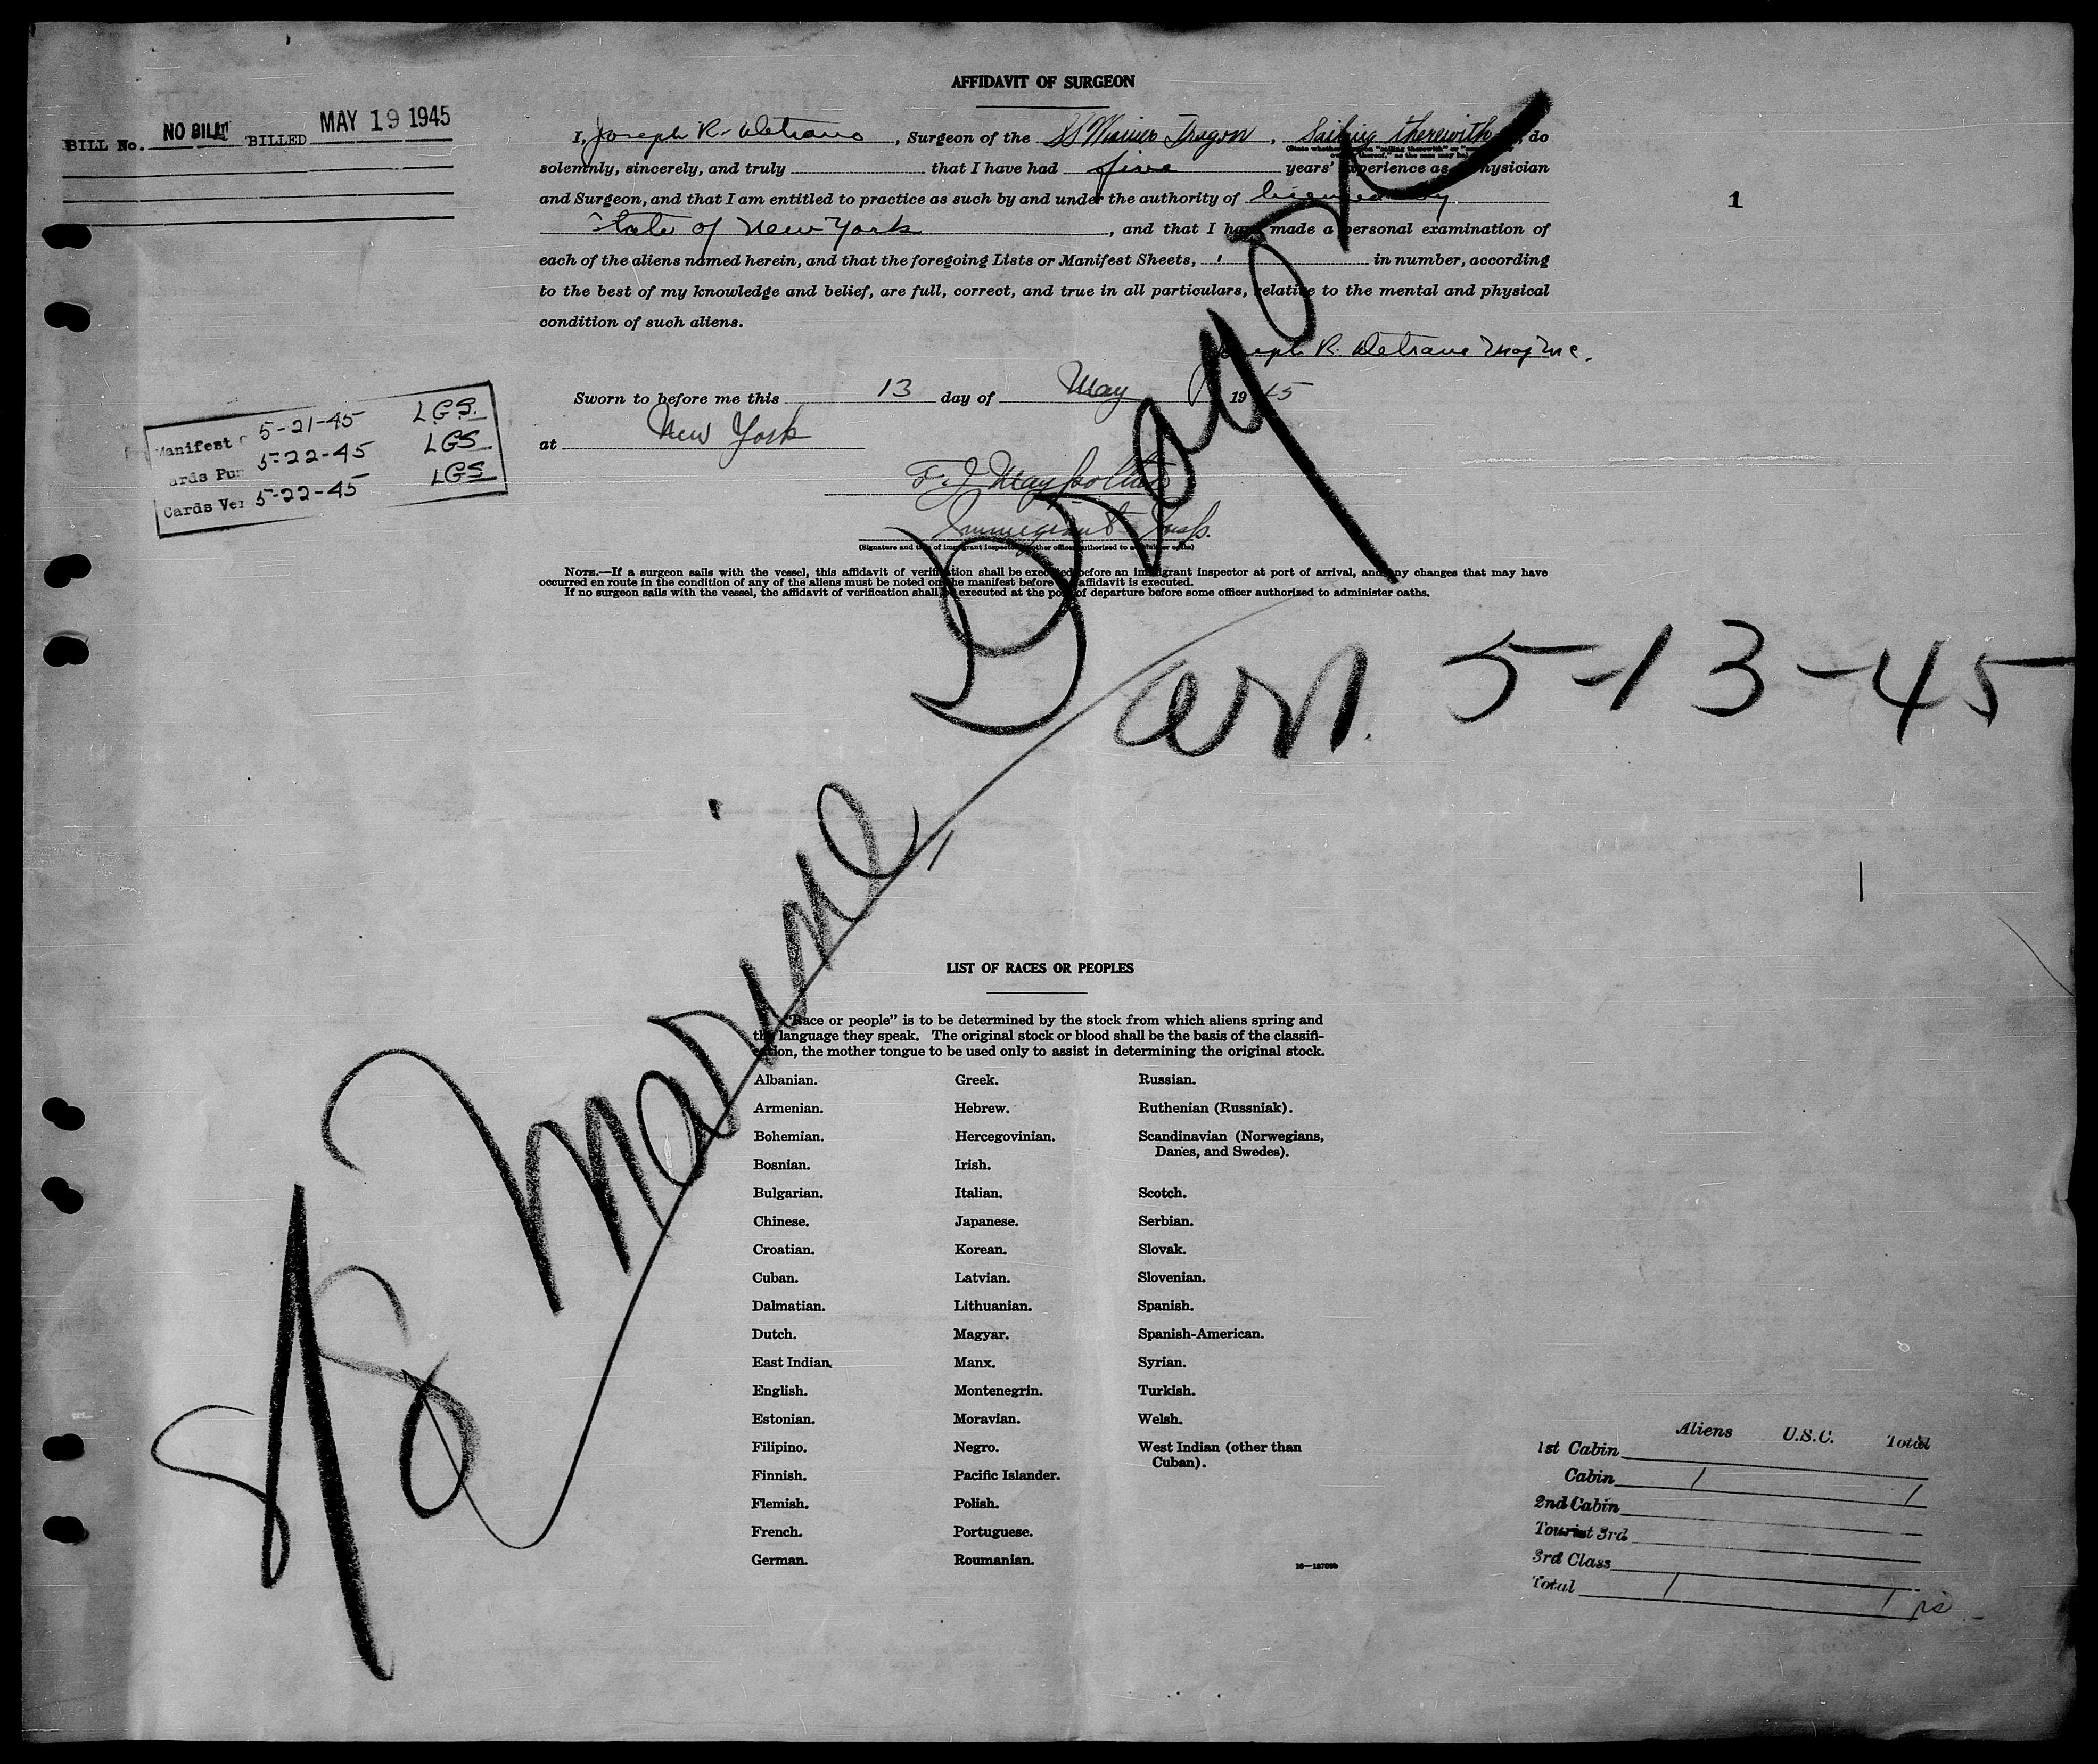 AFFIDAVIT OF SURGEON
BILL No. NO BILL BILLED MAY 19 1945
I, Joseph R. Detrano, Surgeon of the SS Marine Dragon, Sailing therewith, do
solemnly, sincerely, and truly that I have had five years' experience as Physician
and Surgeon, and that I am entitled to practice as such by and under the authority of licensed by
State of New York, and that I have made a personal examination of
each of the aliens named herein, and that the foregoing Lists or Manifest Sheets, 1 in number, according
to the best of my knowledge and belief, are full, correct, and true in all particulars, relative to the mental and physical
condition of such aliens.
1
Joseph R. Detrano Maj MC.
Sworn to before me this 13 day of May 1945
at New York
F. J.
Immigrant Insp.
(Signature and title of immigrant inspector or other officer authorized to administer oaths)
Manifest 5-21-45 LGS.
Cards Pun 5-22-45 LGS
Cards Ver 5-22-45 LGS
NOTE.—If a surgeon sails with the vessel, this affidavit of verification shall be executed before an immigrant inspector at port of arrival, and any changes that may have
occurred en route in the condition of any of the aliens must be noted on the manifest before affidavit is executed.
If no surgeon sails with the vessel, the affidavit of verification shall be executed at the port of departure before some officer authorized to administer oaths.
SS Marine Dragon
arr. 5-13-45
1
LIST OF RACES OR PEOPLES
"Race or people" is to be determined by the stock from which aliens spring and
the language they speak. The original stock or blood shall be the basis of the classifi-
cation, the mother tongue to be used only to assist in determining the original stock.
Albanian.
Armenian.
Bohemian.
Bosnian.
Bulgarian.
Chinese.
Croatian.
Cuban.
Dalmatian.
Dutch.
East Indian.
English.
Estonian.
Filipino.
Finnish.
Flemish.
French.
German.
Greek.
Hebrew.
Hercegovinian.
Irish.
Italian.
Japanese.
Korean.
Latvian.
Lithuanian.
Magyar.
Manx.
Montenegrin.
Moravian.
Negro.
Pacific Islander.
Polish.
Portuguese.
Roumanian.
Russian.
Ruthenian (Russniak).
Scandinavian (Norwegians,
Danes, and Swedes).
Scotch.
Serbian.
Slovak.
Slovenian.
Spanish.
Spanish-American.
Syrian.
Turkish.
Welsh.
West Indian (other than
Cuban).
Aliens U.S.C. Total
1st Cabin
Cabin 1 1
2nd Cabin
Tourist 3rd
3rd Class
Total 1 1